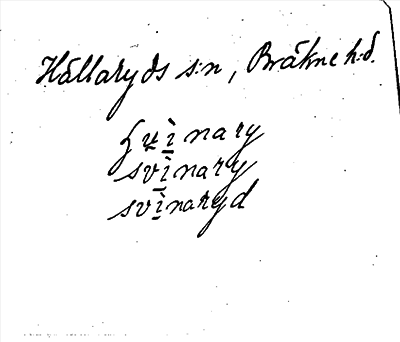 Hällaryds s:n, Bräkne h:d.
svìnary
svìnary
svìnaryd